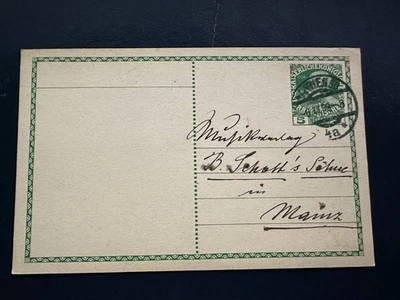 WIEN
5
4a
Musikverlag
B. Schott's Söhne
in
Mainz